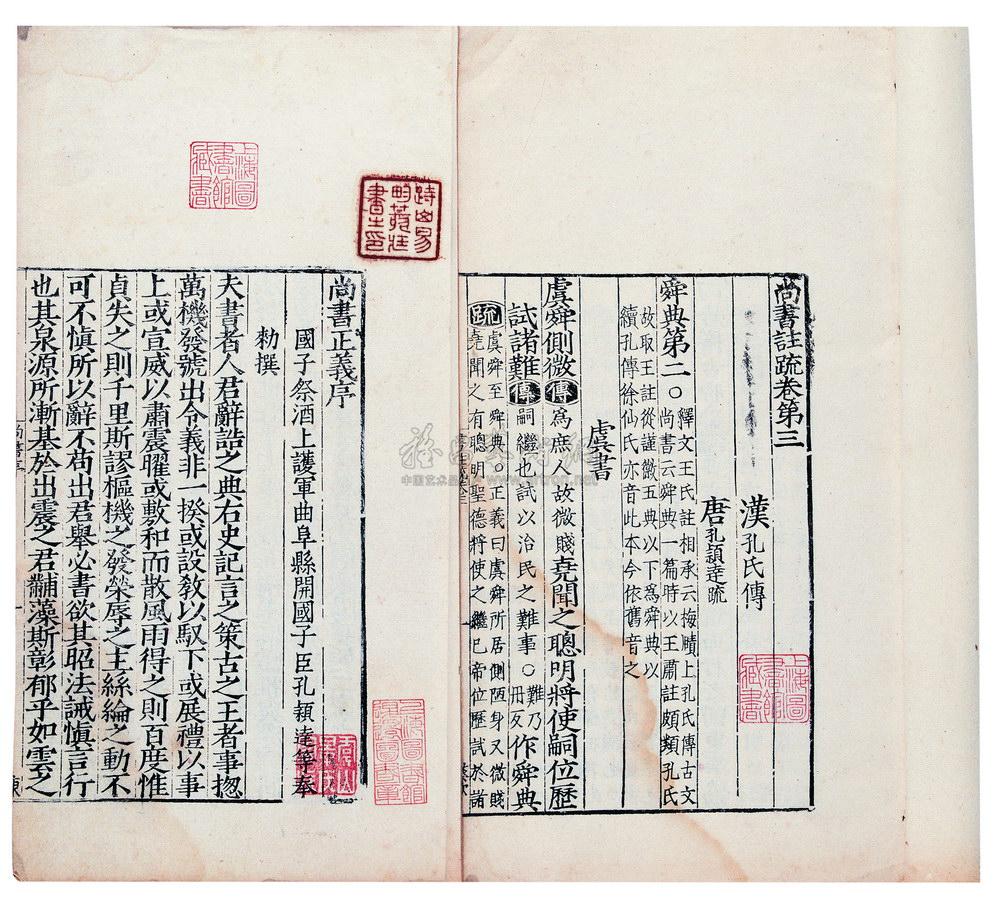 尚書註疏卷第三
漢孔氏傳
唐孔穎達疏
舜典第二○釋文王氏註相承云梅賾上孔氏傳古文
尚書云舜典一篇時以王肅註頗類孔氏
故取王註從謹徽五典以下爲舜典以
續孔傳徐仙氏亦音此本今依舊音之
虞書
虞舜側微傳爲庶人故微賤堯聞之聰明將使嗣位歷
試諸難傳嗣繼也試以治民之難事○難乃
丹反作舜典
疏虞舜至舜典○正義曰虞舜所居側陋身又微賤
堯聞之有聰明聖德將使之繼己帝位歷試於諸
尚書正義序
國子祭酒上護軍曲阜縣開國子臣孔穎達等奉
勑撰
夫書者人君辭誥之典右史記言之策古之王者事揔
萬機發號出令義非一揆或設教以馭下或展禮以事
上或宣威以肅震曜或敷和而散風雨得之則百度惟
貞失之則千里斯謬樞機之發榮辱之主絲綸之動不
可不慎所以辭不苟出君舉必書欲其昭法誡慎言行
也其泉源所漸基於出震之君黼藻斯彰郁乎如雲之
上海圖
書館
藏書
上海圖
書館
藏書